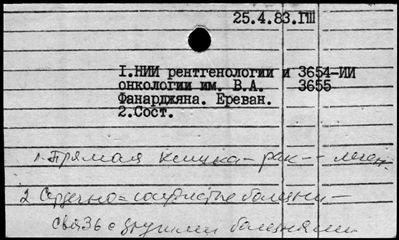 25.4.83.ГШ
I.НИИ рентгенологии и 3654-ИИ
онкологии им. В.А. 3655
Фанарджяна. Ереван.
2.Сост.
1. Прямая кишка - рак - - лечен.
2. Сердечно-сосудистые болезни -
связь с другими болезнями